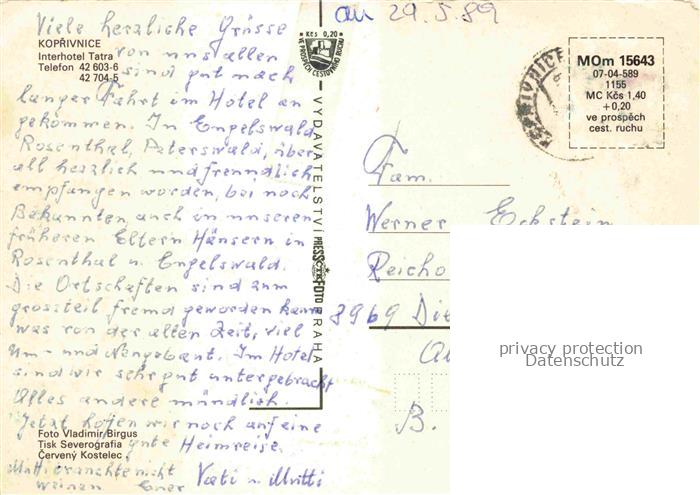 Viele herzliche Grüsse
KOPŘIVNICE
Interhotel Tatra
von uns allen
Telefon 42 603-6
42 704-5
sind gut nach
langer Fahrt im Hotel an
gekommen. In Engelswald,
Rosenthal, Peterswald, über
all herzlich und freundlich
empfangen worden, bei noch
Bekannten auch in unseren
früheren Eltern Häusern in
Rosenthal u. Engelswald.
Die Ortschaften sind zum
grossteil fremd geworden kaum
was von der alten Zeit, viel
Um- und Neugebaut. Im Hotel
sind wir sehr gut untergebracht
Alles andere mündlich.
Jetzt hoffen wir noch auf eine
gute Heimreise.
Foto Vladimír Birgus
Tisk Severografia
Červený Kostelec
Mutti brauchte nicht
weinen Euer
Vati u. Mutti
Kčs 0,20
VE PROSPĚCH CESTOVNÍHO RUCHU
VYDAVATELSTVÍ PRESSFOTO PRAHA
ČTK
an 29.5.89
KOPŘIVNICE
MOm 15643
07-04-589
1155
MC Kčs 1,40
+0,20
ve prospěch
cest. ruchu
Fam.
Werner Eckstein
Reicho
8969 Die
B.
privacy protection
Datenschutz